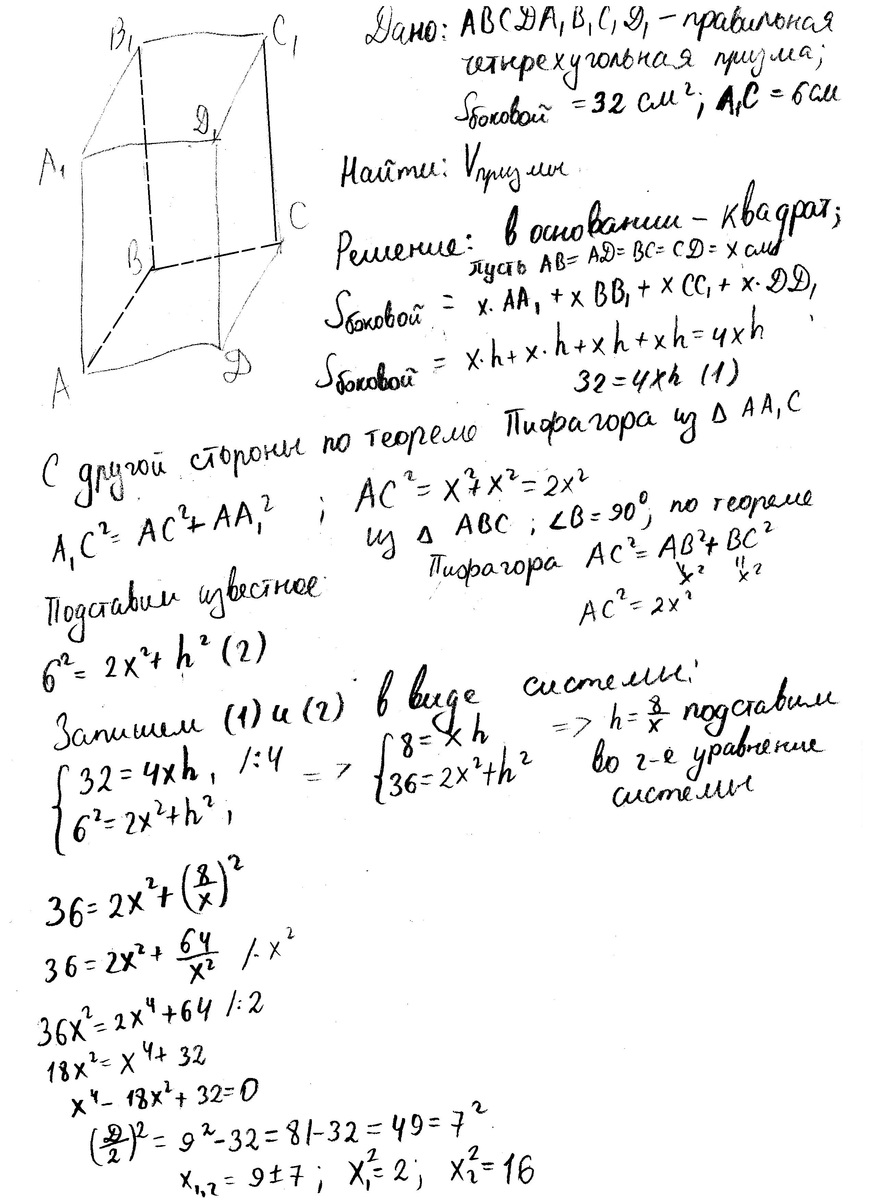 B₁ C₁
A₁ D₁
B C
A D
Дано: ABCDA₁B₁C₁D₁ – правильная
четырехугольная призма;
Sбоковой = 32 см²; A₁C = 6 см
Найти: Vпризмы
Решение: в основании – квадрат;
пусть AB = AD = BC = CD = x см
Sбоковой = x·AA₁ + x BB₁ + x CC₁ + x·DD₁
Sбоковой = x·h + x·h + xh + xh = 4xh
32 = 4xh (1)
С другой стороны по теореме Пифагора из Δ AA₁C
A₁C² = AC² + AA₁² ; AC² = x² + x² = 2x²
из Δ ABC; ∠B = 90°, по теореме
Пифагора AC² = AB² + BC²
x² x²
AC² = 2x²
Подставим известное:
6² = 2x² + h² (2)
Запишем (1) и (2) в виде системы:
{ 32 = 4xh, /:4 => { 8 = xh => h = 8/x подставим
6² = 2x² + h²; 36 = 2x² + h² во 2-е уравнение
системы
36 = 2x² + (8/x)²
36 = 2x² + 64/x² /· x²
36x² = 2x⁴ + 64 /:2
18x² = x⁴ + 32
x⁴ – 18x² + 32 = 0
(D/2)² = 9² – 32 = 81 – 32 = 49 = 7²
x₁,₂ = 9 ± 7; x₁² = 2; x₂² = 16